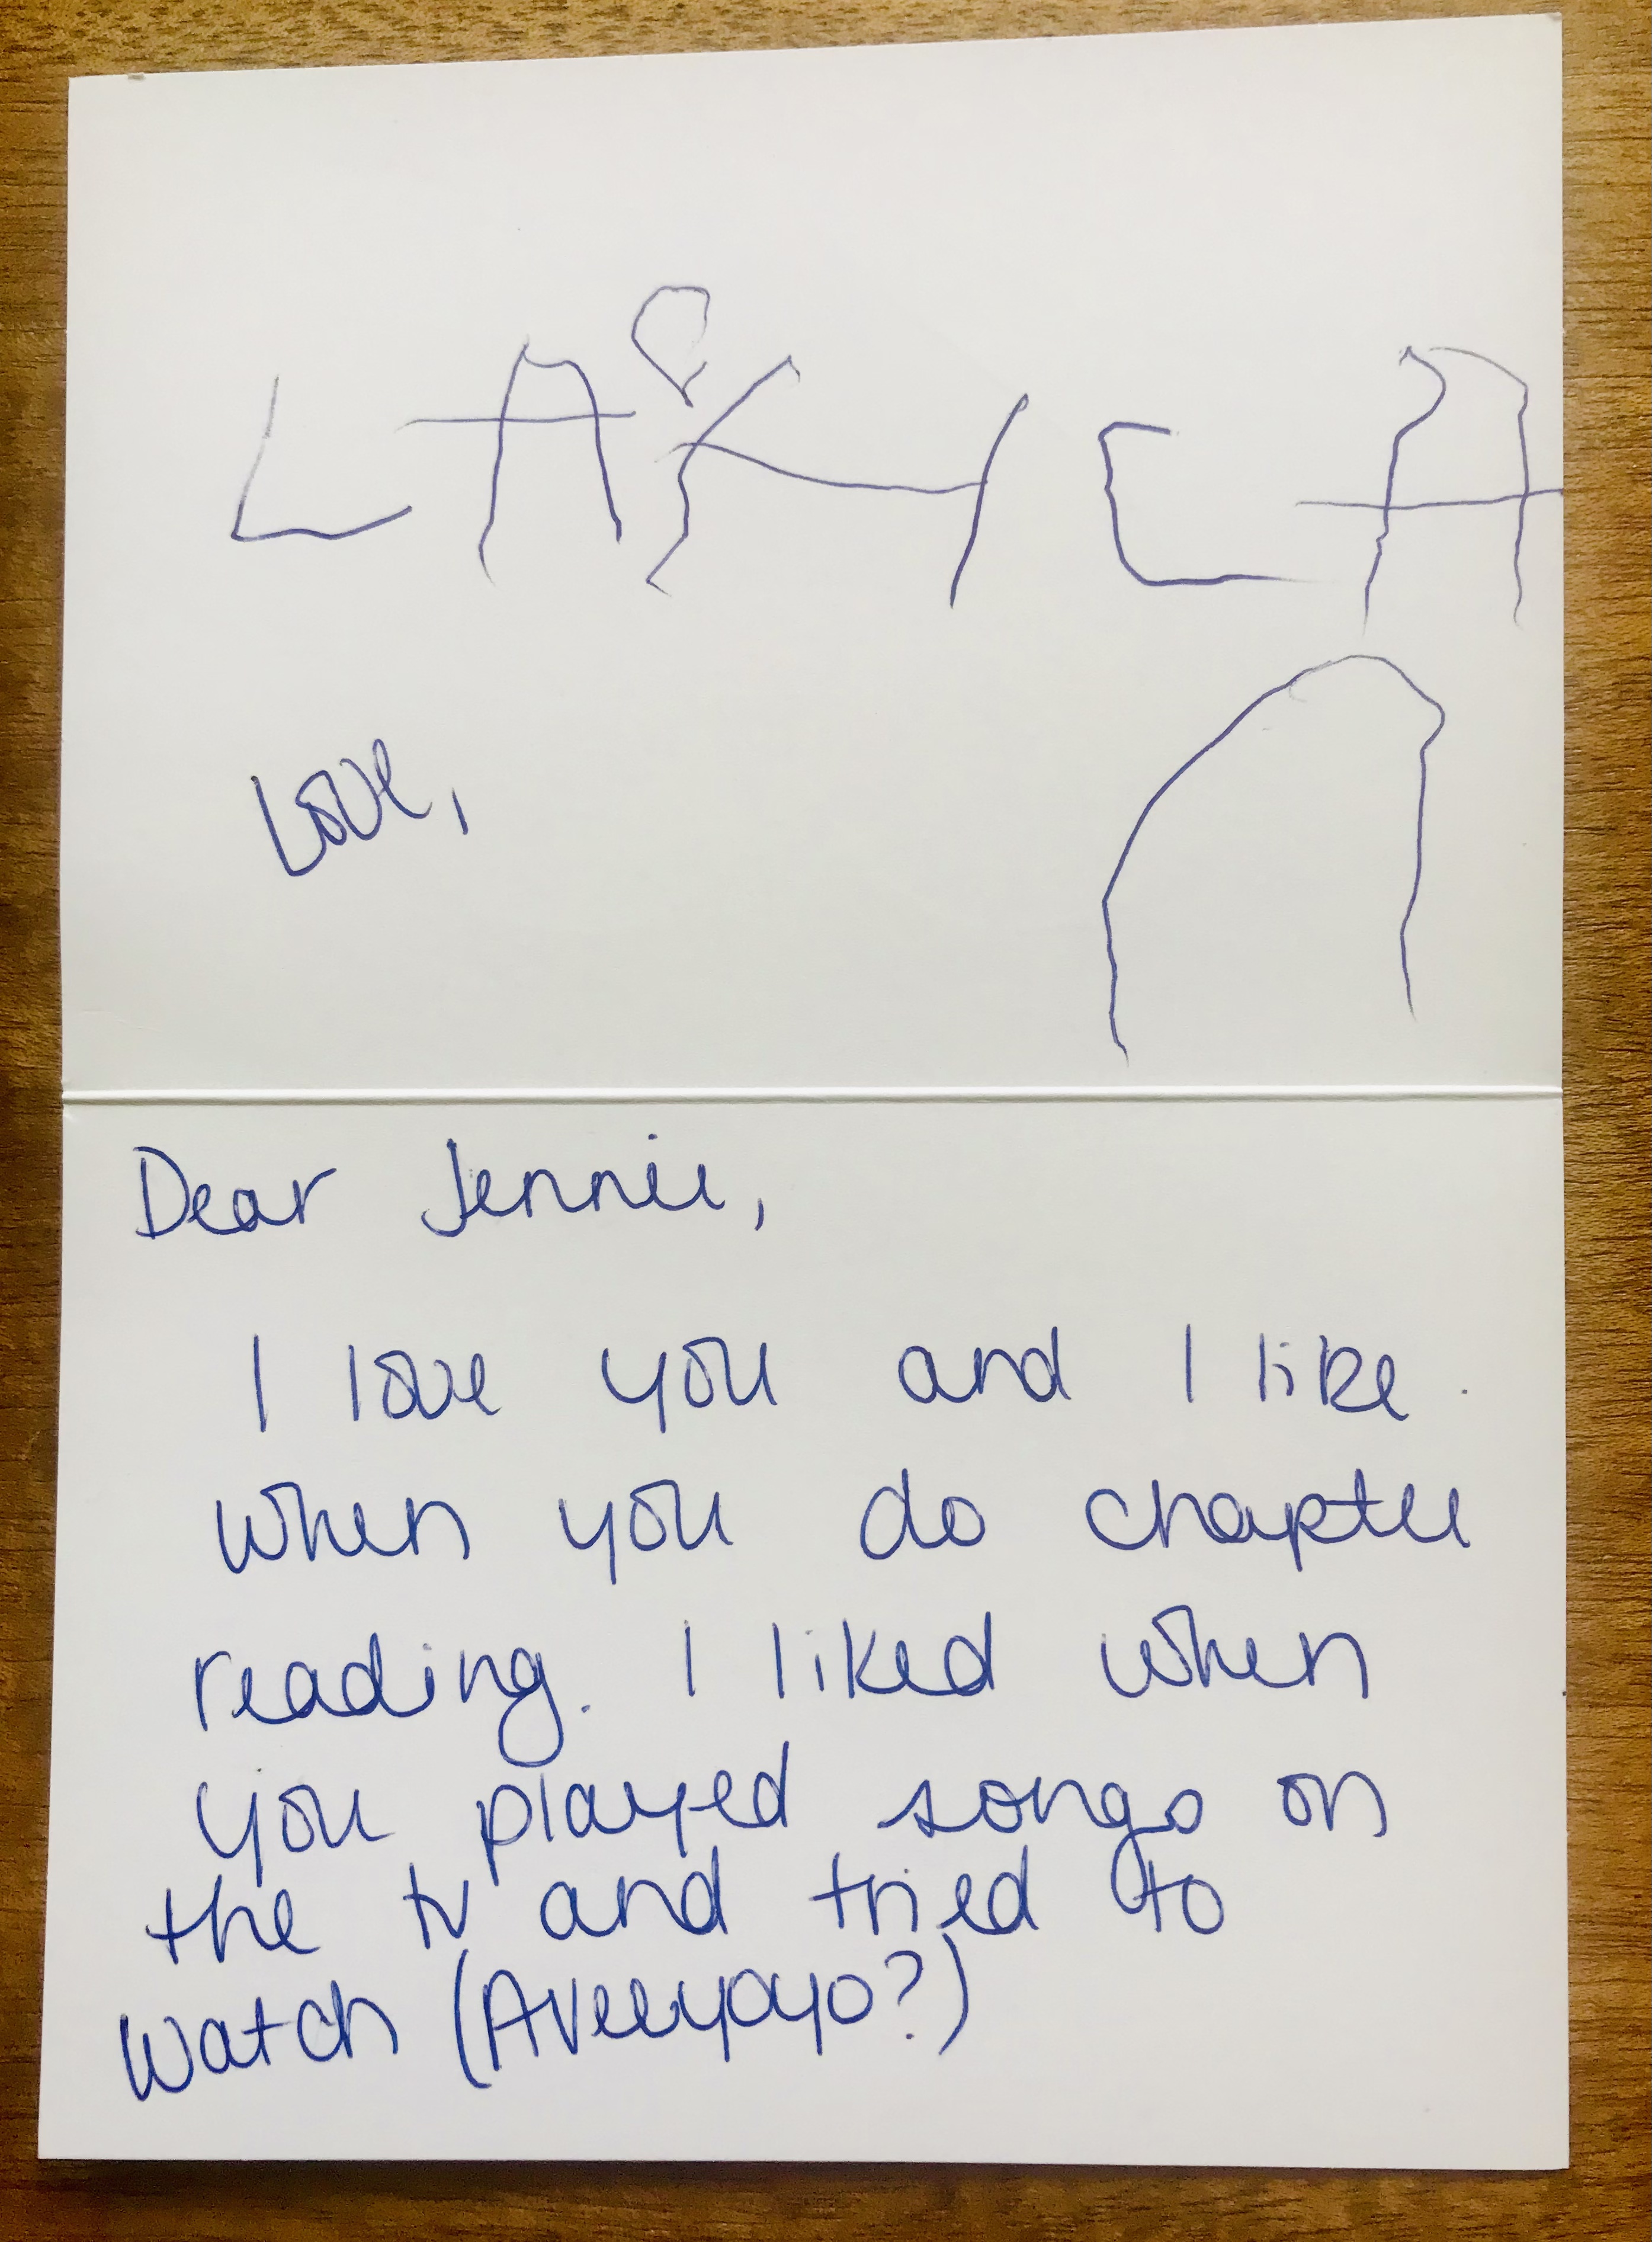 LACHLAN
Love,
Dear Jennie,
I love you and I like
when you do chapter
reading. I liked when
you played songs on
the tv and tried to
watch (Aveeyoyo?)